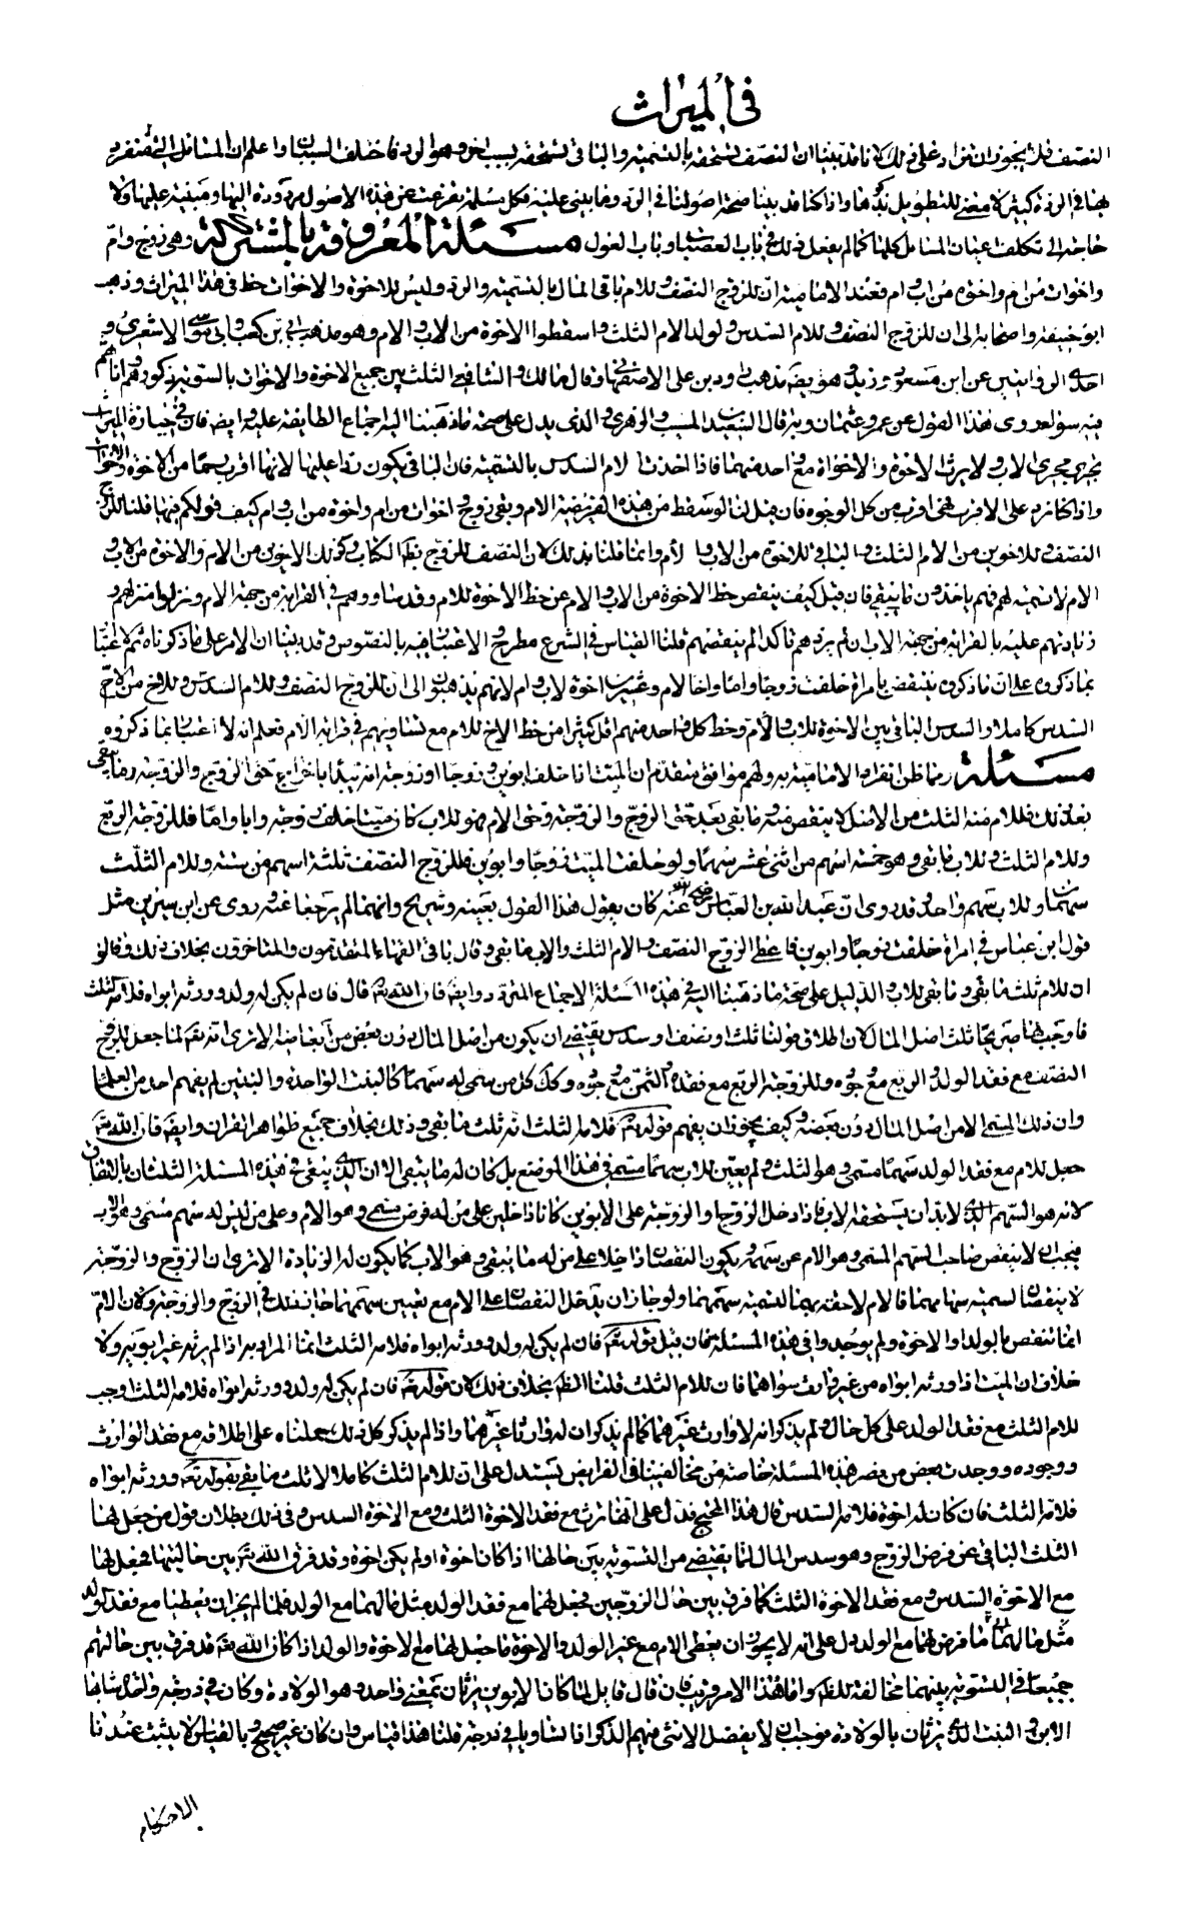 في الميراث
النصف فلا يجوز ان تزاد على ذلك لانا قد بينا ان النصف تستحقه بالتسمية والباقي تستحقه بسبب اخر وهو الرد فاختلف السببان واعلم ان المسائل التي تنفرد
بها في الرد كثيرة لا معنى للتطويل بذكرها واذا كنا قد بينا صحة اصولنا في الرد وما يبنى عليه فكل مسئلة تفرعت عن هذه الاصول مردودة اليها ومبنية عليها ولا
حاجة الى تكلف اعيان المسائل كلها كما لم يفعل ذلك في باب العصبات وباب العول مسئلة المعروفة بالمشتركة وهي زوج وام
واخوات من ام واخوة من اب وام فعند الامامية ان للزوج النصف وللام باقي المال بالتسمية والرد وليس للاخوة والاخوات حظ في هذا الميراث وذهب
ابو حنيفة واصحابه الى ان للزوج النصف وللام السدس ولولد الام الثلث واسقطوا الاخوة من الاب والام وهو مذهب ابي بن كعب وابي موسى الاشعري و
احدى الروايتين عن ابن مسعود وزيد وهو ايضا مذهب داود بن علي الاصفهاني وقال مالك والشافعي الثلث بين جميع الاخوة والاخوات بالسوية ذكورهم واناثهم
فيه سواء وروى هذا القول عن عمر وعثمان وبه قال سعيد المسيب والزهري والذي يدل على صحة ما ذهبنا اليه اجماع الطايفة عليه وايضا فان في حيازة الميراث
تجري مجرى الاب ولا يرث الاخوة والاخوات مع واحد منهما فاذا اخذت الام السدس بالتسمية فان الباقي يكون ردا عليها لانها اقرب رحما من الاخوة والاخوات
واذا كان يرد على الاقرب فهي اقرب من كل الوجوه فان قيل لنا لو سقط من هذه الفريضة الام وبقي زوج واخوات من ام واخوة من اب وام كيف قولكم فيها قلنا للزوج
النصف وللاخوين من الام الثلث والباقي للاخوة من الاب والام وانما قلنا بذلك لان النصف للزوج بظاهر الكتاب وكذلك الاخوين من الام والاخوة من الاب و
الام لا تسمية لهم فهم ياخذون ما يبقى فان قيل كيف ينقص حظ الاخوة من الاب والام عن حظ الاخوة للام وقد ساووهم في القرابة من جهة الام ونزلوا منزلهم و
زيادتهم عليه بالقرابة من جهة الاب ان لم يزدهم تاكدا لم ينقصهم قلنا القياس في الشرع مطرح والاعتبار فيه بالنصوص وقد بينا ان الامر على ما ذكرناه ثم لا اعتبار
بما ذكروه على ان ما ذكروه ينتقض بامراة خلفت زوجا واما واخا لام وعشرين اخوة لاب وام لانهم يذهبون الى ان للزوج النصف وللام السدس وللاخ من الام
السدس كاملا والسدس الباقي بين الاخوة للاب والام وحظ كل واحد منهم اقل كثيرا من حظ الاخ للام مع تساويهم في قرابة الام فعلم انه لا اعتبار بما ذكروه
مسئلة ربما ظن انفراد الامامية به ولهم موافق متقدم ان الميت اذا خلف ابوين وزوجا او زوجة انه يبتدا باخراج حق الزوج والزوجة وما بقي
بعد ذلك فللام منه الثلث من الاصل لا ينقص منه وما بقي بعد حق الزوج والزوجة وحق الام فهو للاب كان ميتا خلف زوجة وابا واما فللزوجة الربع
وللام الثلث وللاب ما بقي وهو خمسة اسهم من اثني عشر سهما ولو خلفت الميت زوجا وابوين فللزوج النصف ثلثة اسهم من ستة وللام الثلث
سهمان وللاب سهم واحد وقد روى ان عبد الله بن العباس رضي الله عنه كان يقول هذا القول بعينه وشريح وانهما لم يرجعا عنه وروى عن ابن سيرين مثل
قول ابن عباس في امراة خلفت زوجا وابوين فاعطى الزوج النصف والام الثلث والاب ما بقي وقال باقي الفقهاء المتقدمون والمتاخرون بخلاف ذلك وقالوا
ان للام ثلث ما بقي وما بقي للاب والدليل على صحة ما ذهبنا اليه في هذه المسئلة الاجماع المتردد وايضا فان الله تعالى قال فان لم يكن له ولد وورثه ابواه فلامه الثلث
فاوجب لها صريحا ثلث اصل المال لان اطلاق قولنا ثلث او نصف او سدس يقتضي ان يكون من اصل المال دون بعض من ابعاضه الا ترى انه تعالى لما جعل للزوج
النصف مع فقد الولد والربع مع وجوده وللزوجة الربع مع فقده والثمن مع وجوده وكذلك كل من سمى له سهما كالبنت الواحدة والبنتين لم يفهم احد من العلماء
وان ذلك المسمى الا من اصل المال دون بعضه وكيف يجوز ان يفهم قوله تعالى فلامه الثلث انه ثلث ما بقي وذلك بخلاف جميع ظواهر القران وايضا فان الله تعالى
جعل للام مع فقد الولد سهما مسمى وهو الثلث ولم يعين للاب سهما مسمى في هذا الموضع بل كان له ما يبقى الا ان الذي يبقى في هذه المسئلة الثلثان بالاتفاق
لانه هو السهم الذي لا بد ان يستحقه الاب فاذا دخل الزوج او الزوجة على الابوين كانا داخلين على من له فرض مسمى وهو الام وعلى من ليس له سهم مسمى وهو الاب
فيجب ان لا ينقص صاحب السهم المسمى وهو الام عن سهمه ويكون النقصان داخلا على من له ما يبقى وهو الاب كما يكون له الزيادة الا ترى ان الزوج والزوجة
لا ينقصان لتسمية سهامهما فالام لاحقة بهما لتسمية سهمهما ولو جاز ان يدخل النقصان على الام مع تعيين سهمهما جاز ذلك في الزوج والزوجة ولان الام
انما تنقص بالولد او الاخوة ولم يوجدوا في هذه المسئلة فان قيل قوله تعالى فان لم يكن له ولد وورثه ابواه فلامه الثلث انما المراد به اذا لم يرثه غير ابويه ولا
خلاف ان الميت اذا ورثه ابواه من غير وارث سواهما فان للام الثلث قلنا الظاهر بخلاف ذلك لان قوله تعالى فان لم يكن له ولد وورثه ابواه فلامه الثلث اوجب
للام الثلث مع فقد الولد على كل حال ولم يذكر انه لا وارث غيرهما كما لم يذكر ان له وارثا غيرهما واذا لم يذكر كل ذلك حملناه على اطلاقه مع فقد الوارث
ووجوده ووجدت بعض من نصر هذه المسئلة خاصة من مخالفينا في الفرايض يستدل على ان للام الثلث كاملا لا ثلث ما بقي بقوله تعالى وورثه ابواه
فلامه الثلث فان كان له اخوة فلامه السدس قال هذا المحتج فدل على انها ترث مع فقد الاخوة الثلث ومع الاخوة السدس وفي ذلك بطلان قول من جعل لها
الثلث الباقي عن فرض الزوج وهو سدس المال لما يقتضي من التسوية بين حالها اذا كان اخوة او لم يكن اخوة وقد فرق الله تعالى بين حاليها فجعل لها
مع الاخوة السدس ومع فقد الاخوة الثلث كما فرق بين حال الزوجين فجعل لهما مع فقد الولد مثلي مالهما مع الولد فلما لم يجز ان يعطيا مع فقد الولد
مثل ما فرض لهما مع الولد دل على انه لا يجوز ان يعطى الام مع غير الولد والاخوة ما حصل لها مع الاخوة والولد اذا كان الله تعالى قد فرق بين حالتهم
جميعا في التسوية بينهما مخالفة للظاهر واما هذا الامر قريب فان قال قايل لما كانا الابوين يرثان بمعنى واحد وهو الولادة وكان في درجة واحدة شابها
الابن والبنت الذين يرثان بالولادة فوجب ان لا يفضل الانثى منهم الذكر اذا تساويا في درجة قلنا هذا قياس وان كان غير صحيح وبالقياس لا يثبت عندنا
الاحكام